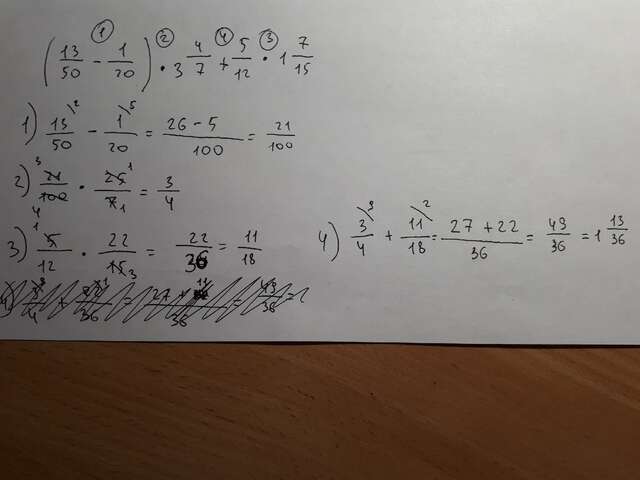 ① ② ④ ③
(13/50 - 1/20) · 3 4/7 + 5/12 · 1 7/15
1) 13/50 \2 - 1/20 \5 = 26 - 5/100 = 21/100
2) 21/100 · 25/7 = 3/4
3) 5/12 · 22/15 = 22/36 = 11/18
4) 3/4 \9 + 11/18 \2 = 27 + 22/36 = 49/36 = 1 13/36